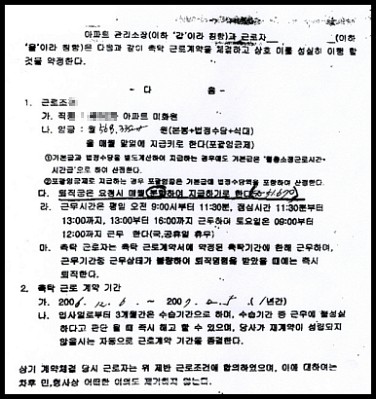 아파트 관리소장(이하 '갑'이라 칭함)과 근로자 (이하
'을'이라 칭함)은 다음과 같이 촉탁 근로계약을 체결하고 상호 이를 성실히 이행 할
것을 약정한다.
- 다 음 -
1. 근로조건
가. 직종 아파트 미화원
나. 임금 : 월 원 (본봉+법정수당+식대)
을 매월 말일에 지급키로 한다(포괄임금제)
①기본급과 법정수당을 별도계산하여 지급하는 경우에도 기본급은 '월통소정근로시간×
시간급'으로 하여 산정한다.
②포괄임금제로 지급하는 경우 포괄임금은 기본급에 법정수당액을 포함하여 산정한다.
다. 퇴직금은 요청시 매월 분할하여 지급하기로 한다
라. 근무시간은 평일 오전 9:00시부터 11:30분, 점심시간 11:30분부터
13:00까지, 13:00부터 16:00까지 근무하며 토요일은 09:00부터
12:00까지 근무 한다(국,공휴일 휴무)
마. 촉탁 근로자는 촉탁 근로계약서에 약정된 촉탁기간에 한해 근무하며,
근무기간중 근무상태가 불량하여 퇴직명령을 받았을 때에는 즉시
퇴직한다.
2. 촉탁 근로 계약 기간
가. 2006. 12. 6. ~ 2007. (년간)
나. 입사일로부터 3개월간은 수습기간으로 하며, 수습기간 중 근무에 불성실
하다고 판단 될 때 즉시 해고 할 수 있으며, 당사가 재계약이 성립되지
않을시는 자동으로 근로계약 기간을 종결한다.
상기 계약체결 당시 근로자는 위 제반 근로조건에 합의하였으며, 이에 대하여는
차후 민,형사상 어떠한 이의도 제기하지 않는다.